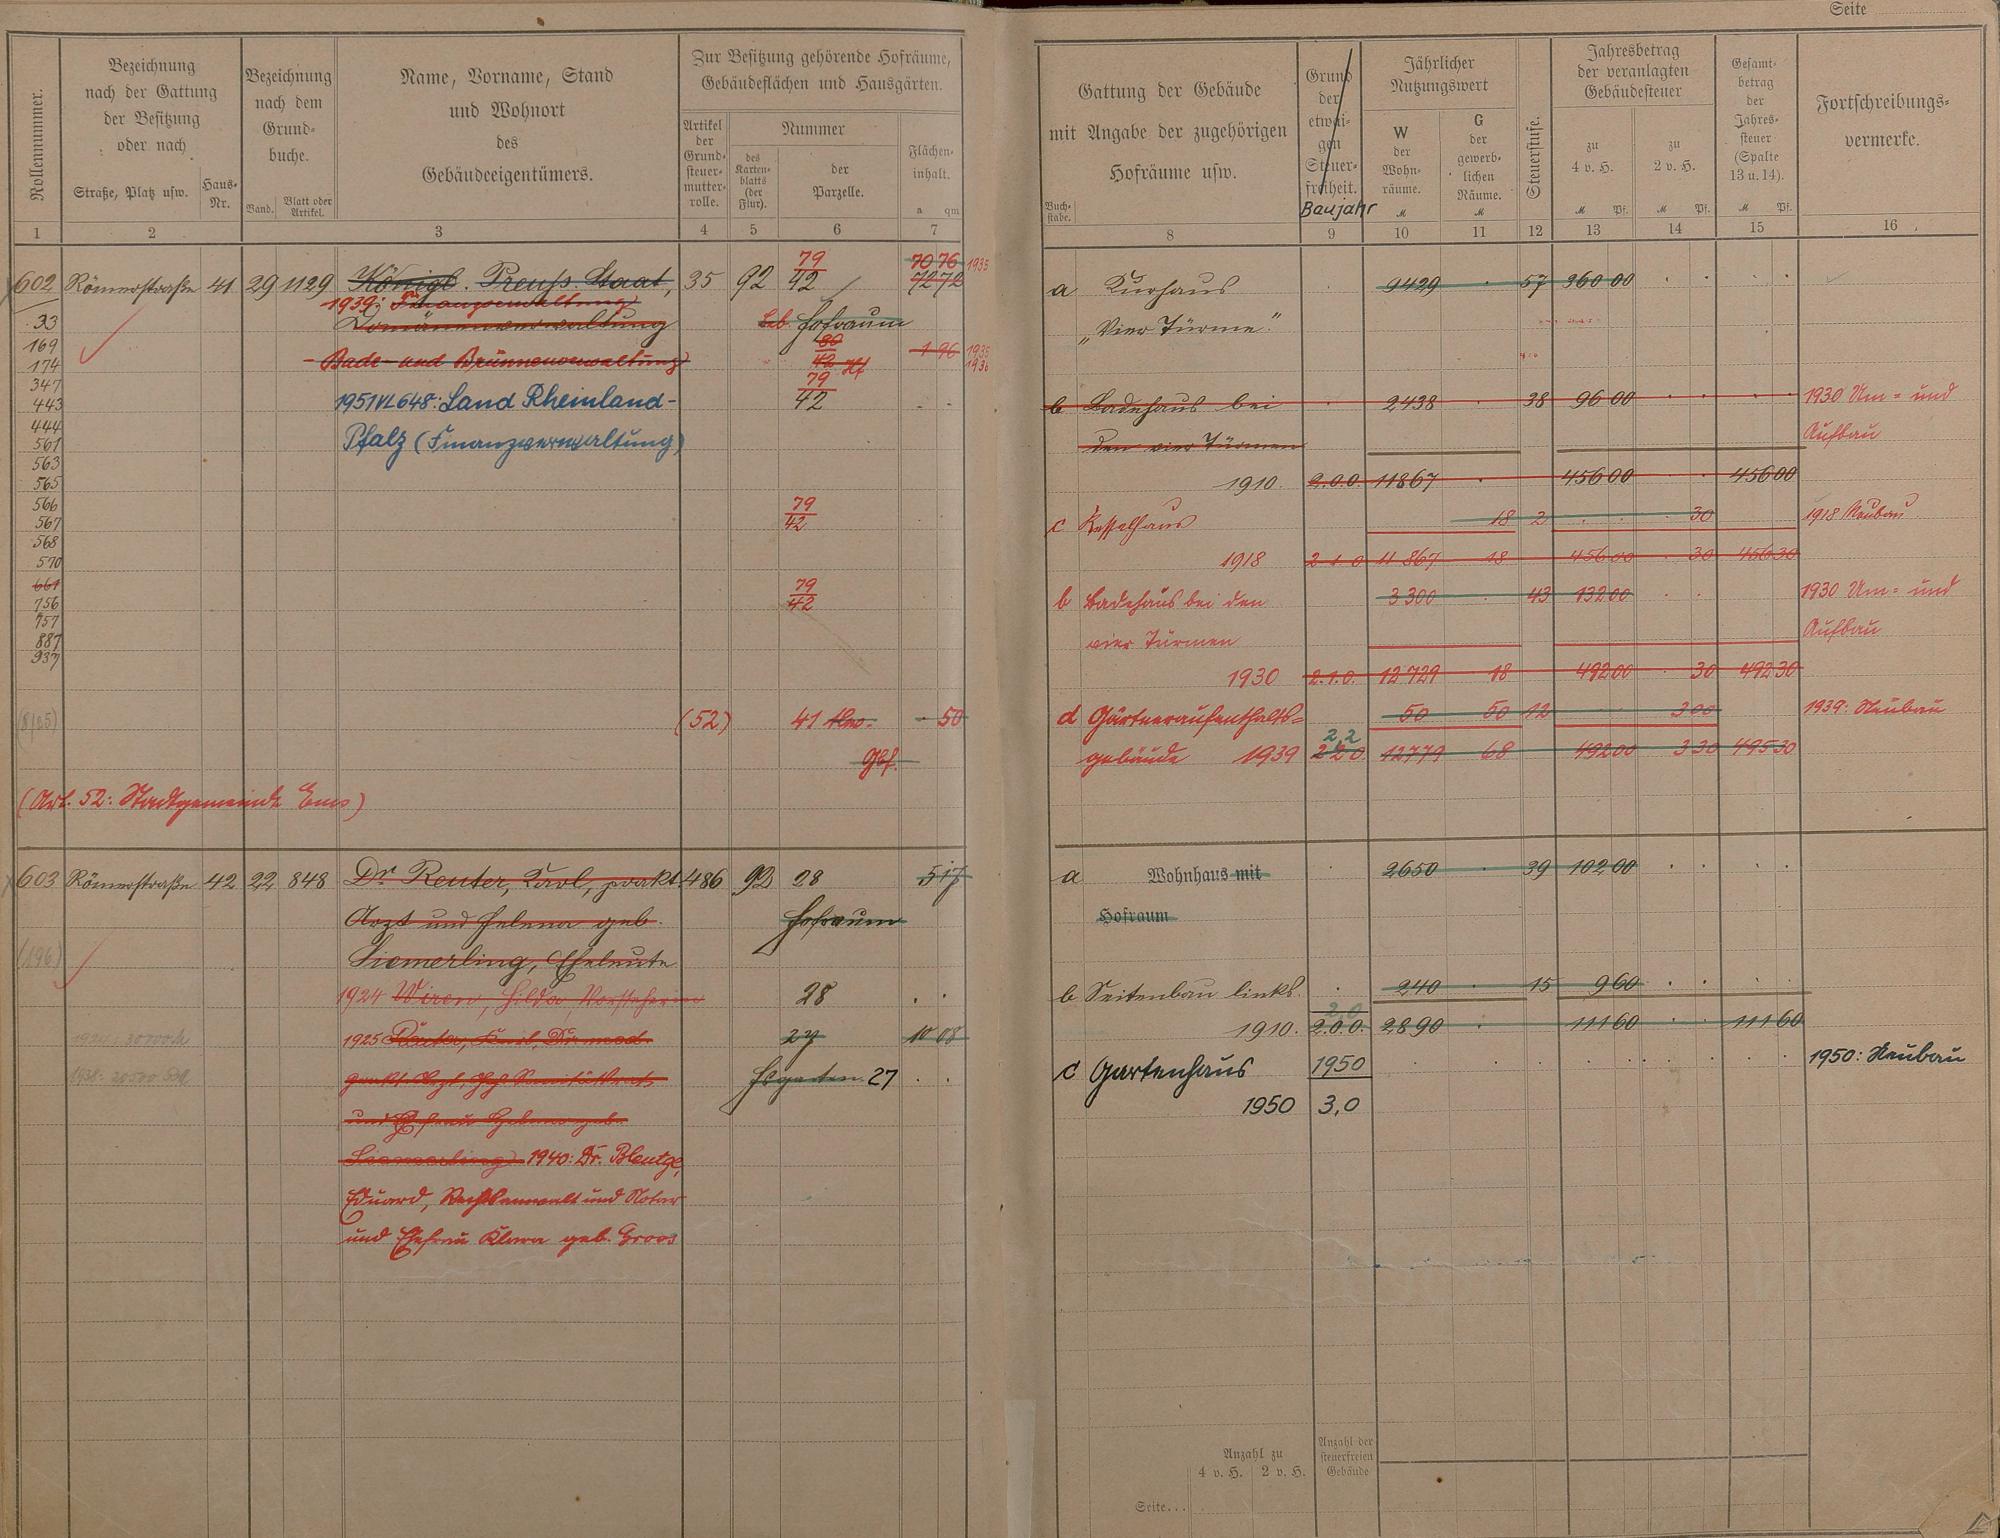 Seite
Rollennummer.
Bezeichnung
nach der Gattung
der Besitzung
oder nach
Straße, Platz usw.
Haus-
Nr.
Bezeichnung
nach dem
Grund-
buche.
Band.
Blatt oder
Artikel.
Name, Vorname, Stand
und Wohnort
des
Gebäudeeigentümers.
Zur Besitzung gehörende Hofräume,
Gebäudeflächen und Hausgärten.
Artikel
der
Grund-
steuer-
mutter-
rolle.
Nummer
des
Karten-
blatts
(der
Flur).
der
Parzelle.
Flächen-
inhalt.
a qm
1 2 3 4 5 6 7
602 Römerstraße 41 29 1129 Königl. Preuss. Staat, 35 92 79/42 7076 1935
7272
1939: Finanzverwaltung
33 Domänenverwaltung Hofraum
169 80/42 Hf 1 96 1935
174 Bade- und Brunnenverwaltung 1936
347 79/42
443 1951 VL 648: Land Rheinland-
444
561 Pfalz (Finanzverwaltung)
563
565
566 79/42
567
568
570
661 79/42
756
757
887
937
(52) 41 50
(Art. 52: Stadtgemeinde Ems)
603 Römerstraße 42 22 848 Dr Reuter, Karl, prakt. 486 92 28 517
Arzt und Helena geb. Hofraum
(196) Siemerling, Eheleute
1924 Wiren, Hilda, Vorsteherin 28
1925 Reuter, Karl, Dr med. 27 10 08
prakt. Arzt, Sanitätsrat Hsgarten 27
und Ehefrau Helena geb.
Siemerling) 1940: Dr. Blentge,
Eduard, Rechtsanwalt und Notar
und Ehefrau Klara geb. Groos
Gattung der Gebäude
mit Angabe der zugehörigen
Hofräume usw.
Buch-
stabe.
Grund
der
etwai-
gen
Steuer-
freiheit.
Baujahr
Jährlicher
Nutzungswert
W
der
Wohn-
räume.
M
G
der
gewerb-
lichen
Räume.
M
Steuerstufe.
Jahresbetrag
der veranlagten
Gebäudesteuer
zu
4 v. H.
M Pf.
zu
2 v. H.
M Pf.
Gesamt-
betrag
der
Jahres-
steuer
(Spalte
13 u. 14).
M Pf.
Fortschreibungs-
vermerke.
8 9 10 11 12 13 14 15 16
a Kurhaus 9429 57 360 00
„Vier Türme"
b Badehaus bei 2438 38 96 00 1930 Um- und
den vier Türmen Aufbau
1910. 2.0.0. 11867 456 00 456 00
c Kesselhaus 18 2 30 1918 Neubau
1918 2 1 0 11 867 18 456 00 30 456 30
b Badehaus bei den 3300 43 132 00 1930 Um- und
vier Türmen Aufbau
1930 2.1.0. 12729 18 492 00 30 492 30
d Gärtneraufenthalts- 50 50 12 3 00 1939: Neubau
2,2
gebäude 1939 2 2 0 12779 68 492 00 3 30 495 30
a Wohnhaus mit 2650 39 102 00
Hofraum
b Seitenbau links. 240 15 9 60
2,0
1910. 2.0.0. 2890 111 60 111 60
c Gartenhaus 1950 1950: Neubau
1950 3,0
Anzahl zu
4 v. H. 2 v. H.
Anzahl der
steuerfreien
Gebäude
Seite...